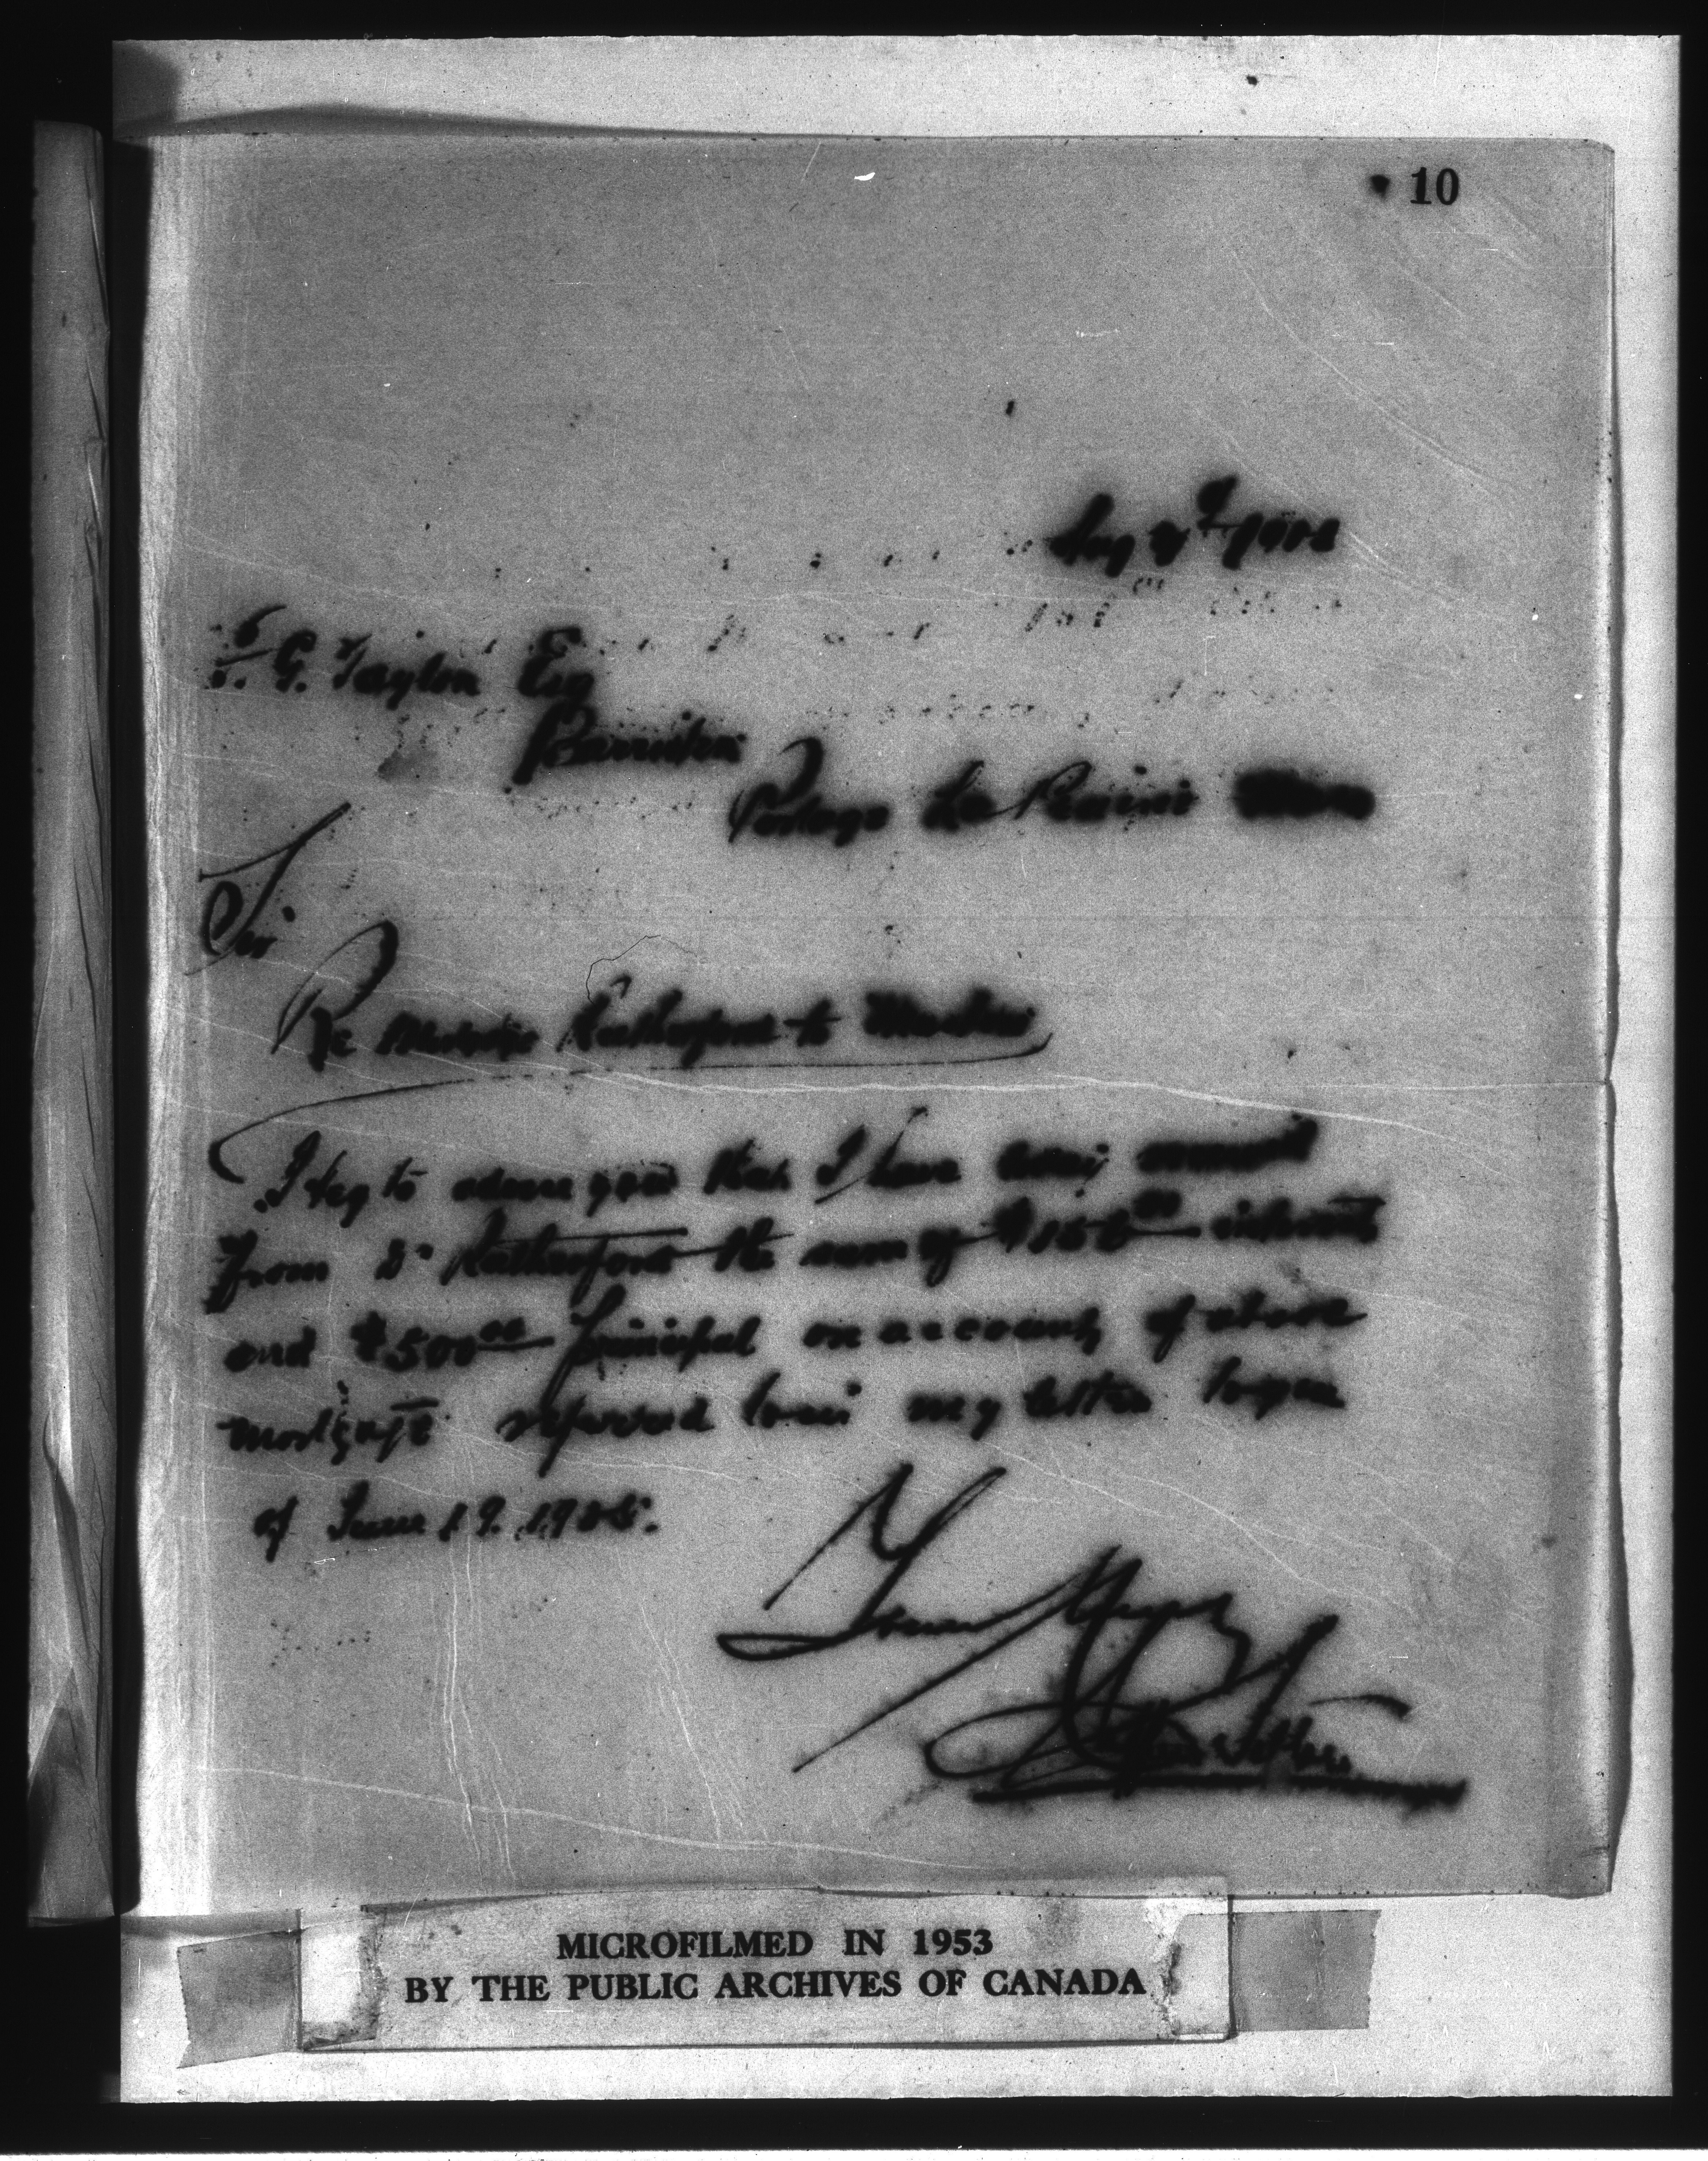 10
F. G. Taylor Esq
Barrister
Portage La Prairie
Sir
Re Rutherford to
I beg to advise you that I have received
from Dr Rutherford the sum of interest
and $500.00 principal on account of above
mortgage referred to in my letter to you
of June 19. 1905.
Yours truly
MICROFILMED IN 1953
BY THE PUBLIC ARCHIVES OF CANADA